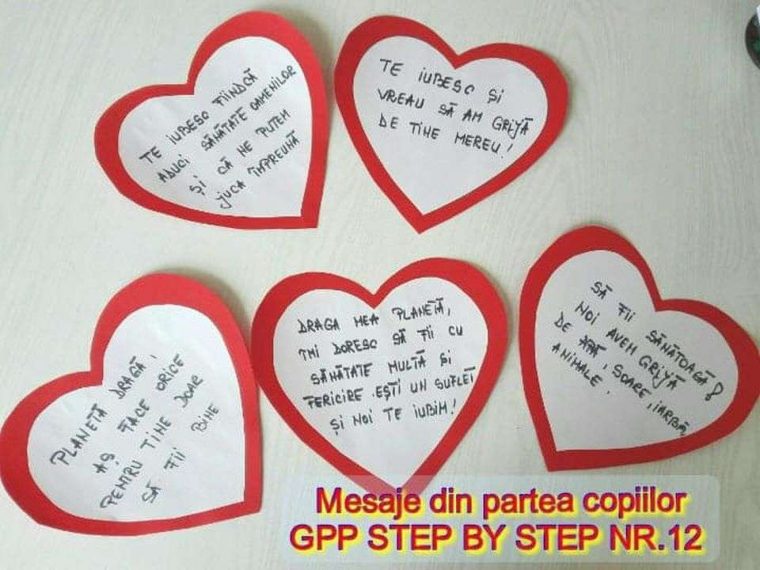 TE IUBESC FIINDCĂ
ADUCI SĂNĂTATE OAMENILOR
ȘI CĂ NE PUTEM
JUCA ÎMPREUNĂ
TE IUBESC ȘI
VREAU SĂ AM GRIJĂ
DE TINE MEREU!
PLANETĂ DRAGĂ,
AȘ FACE ORICE
PENTRU TINE DOAR
SĂ FII BINE
DRAGA MEA PLANETĂ,
ÎMI DORESC SĂ FII CU
SĂNĂTATE MULTĂ ȘI
FERICIRE. EȘTI UN SUFLET
ȘI NOI TE IUBIM!
SĂ FII SĂNĂTOAGĂ!
NOI AVEM GRIJĂ
DE APĂ, SOARE, IARBĂ,
ANIMALE.
Mesaje din partea copiilor
GPP STEP BY STEP NR.12